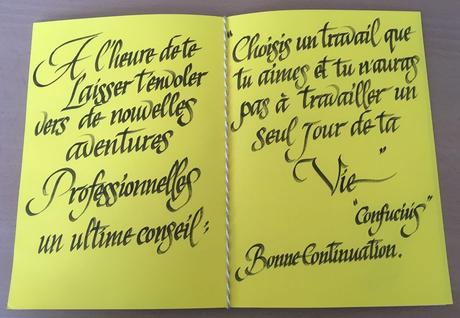 A l'heure de te
Laisser t'envoler
vers de nouvelles
aventures
Professionnelles
un ultime conseil :
"Choisis un travail que
tu aimes et tu n'auras
pas à travailler un
seul Jour de ta
Vie"
"Confucius"
Bonne Continuation.